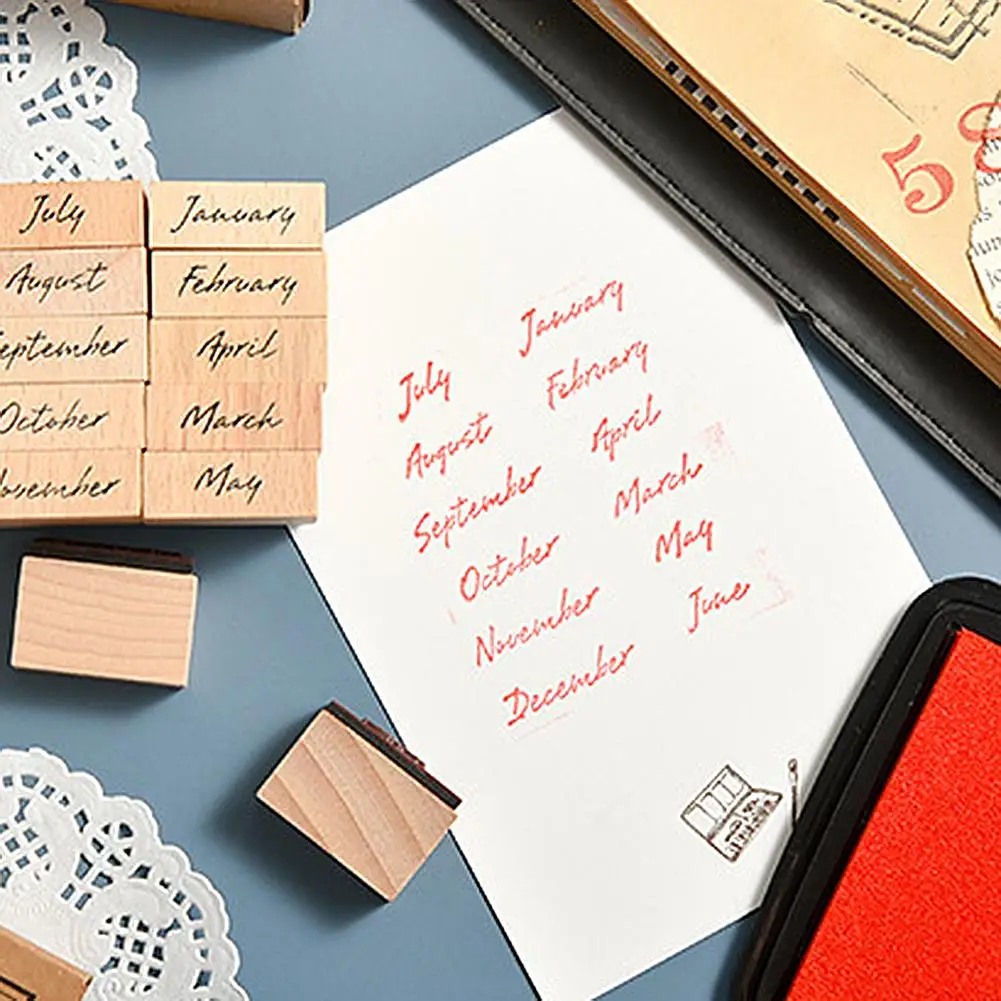 July
January
August
February
September
April
October
March
November
May
January
February
April
March
May
June
July
August
September
October
November
December
58